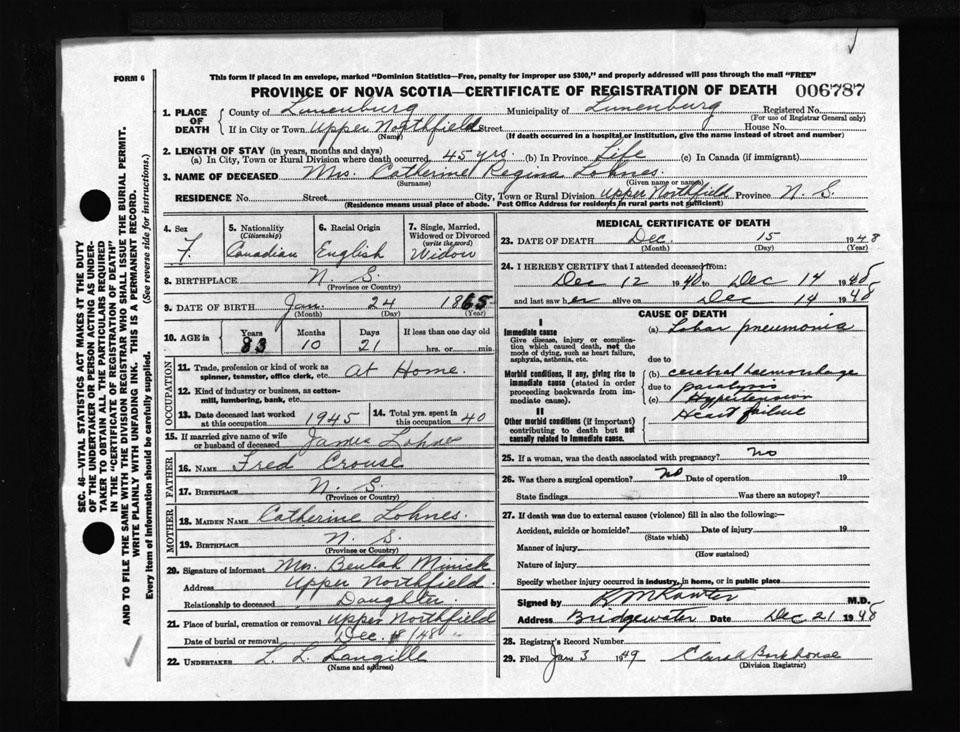 FORM 6
This form if placed in an envelope, marked "Dominion Statistics—Free, penalty for improper use $300," and properly addressed will pass through the mail "FREE"
PROVINCE OF NOVA SCOTIA—CERTIFICATE OF REGISTRATION OF DEATH 006787
1. PLACE OF DEATH
County of Lunenburg Municipality of Lunenburg Registered No.
(For use of Registrar General only)
If in City or Town Upper Northfield Street House No.
(Name) (If death occurred in a hospital or institution, give the name instead of street and number)
2. LENGTH OF STAY (in years, months and days)
(a) In City, Town or Rural Division where death occurred, 45 yrs. (b) In Province Life (c) In Canada (if immigrant)
3. NAME OF DECEASED Mrs. Catherine Regina Lohnes.
(Surname) (Given name or names)
RESIDENCE No. Street City, Town or Rural Division Upper Northfield Province N. S.
(Residence means usual place of abode. Post Office Address for residents in rural parts not sufficient)
4. Sex
F.
5. Nationality
(Citizenship)
Canadian
6. Racial Origin
English
7. Single, Married, Widowed or Divorced
(write the word)
Widow
8. BIRTHPLACE N. S.
(Province or Country)
9. DATE OF BIRTH Jan. 24 1865
(Month) (Day) (Year)
10. AGE in Years Months Days If less than one day old
83 10 21 hrs. or min.
OCCUPATION
11. Trade, profession or kind of work as spinner, teamster, office clerk, etc. At Home.
12. Kind of industry or business, as cotton-mill, lumbering, bank, etc.
13. Date deceased last worked at this occupation 1945
14. Total yrs. spent in 40
15. If married give name of wife or husband of deceased James Lohnes
FATHER
16. NAME Fred Crouse
17. BIRTHPLACE N. S.
(Province or Country)
MOTHER
18. MAIDEN NAME Catherine Lohnes.
19. BIRTHPLACE N. S.
(Province or Country)
20. Signature of informant Mrs. Beulah Minick
Address Upper Northfield.
Relationship to deceased Daughter.
21. Place of burial, cremation or removal Upper Northfield
Date of burial or removal Dec. 18/48
22. UNDERTAKER L. L. Langille
(Name and address)
MEDICAL CERTIFICATE OF DEATH
23. DATE OF DEATH Dec. 15 1948
(Month) (Day) (Year)
24. I HEREBY CERTIFY that I attended deceased from:
Dec 12 1948 to Dec 14 1948
and last saw her alive on Dec 14 1948
CAUSE OF DEATH
I
Immediate cause
Give disease, injury or complication which caused death, not the mode of dying, such as heart failure, asphyxia, asthenia, etc.
(a) Lobar pneumonia
due to
Morbid conditions, if any, giving rise to immediate cause (stated in order proceeding backwards from immediate cause).
(b) cerebral haemorrhage
due to paralysis
(c) Hypertension
Heart failure
II
Other morbid conditions (if important) contributing to death but not causally related to immediate cause.
25. If a woman, was the death associated with pregnancy? no
26. Was there a surgical operation? no Date of operation 19
State findings Was there an autopsy?
27. If death was due to external causes (violence) fill in also the following:—
Accident, suicide or homicide? Date of injury 19
(State which)
Manner of injury
(How sustained)
Nature of injury
Specify whether injury occurred in industry, in home, or in public place
Signed by M.D.
Address Bridgewater Date Dec 21 1948
28. Registrar's Record Number
29. Filed Jan 3 1949 Clara Barkhouse
(Division Registrar)
SEC. 46—VITAL STATISTICS ACT MAKES IT THE DUTY
OF THE UNDERTAKER OR PERSON ACTING AS UNDER-
TAKER TO OBTAIN ALL THE PARTICULARS REQUIRED
IN THE "CERTIFICATE OF REGISTRATION OF DEATH"
AND TO FILE THE SAME WITH THE DIVISION REGISTRAR WHO SHALL ISSUE THE BURIAL PERMIT.
WRITE PLAINLY WITH UNFADING INK. THIS IS A PERMANENT RECORD.
Every item of information should be carefully supplied. (See reverse side for instructions.)